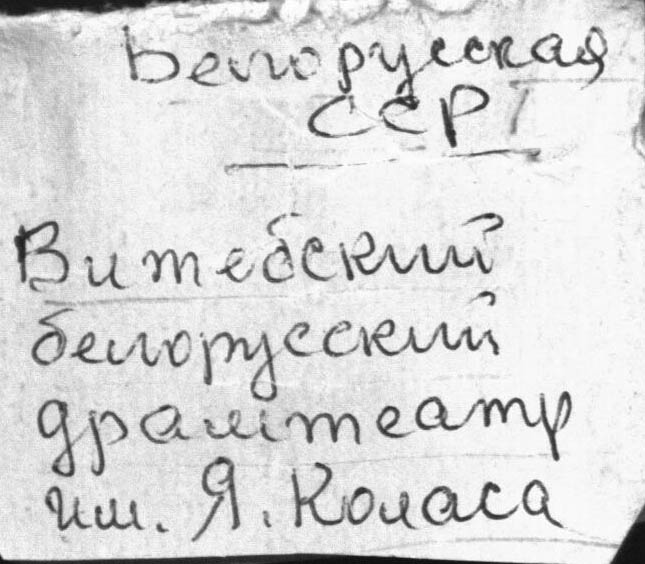 Белорусская
ССР
Витебский
белорусский
драмтеатр
им. Я. Коласа